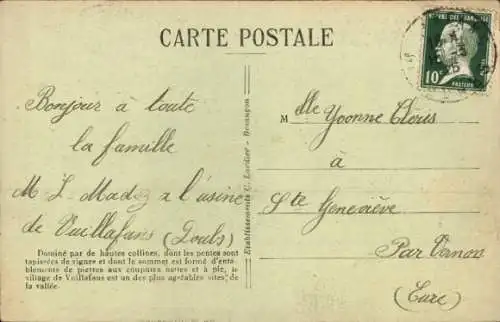 CARTE POSTALE
10c
PASTEUR
Bonjour à toute
la famille
M L Madoz a l'usine
de Vuillafans (Doubs)
Dominé par de hautes collines, dont les pentes sont
tapissées de vignes et dont le sommet est formé d'enta-
blements de pierres aux coupures nettes et à pic, le
village de Vuillafans est un des plus agréables sites de
la vallée.
Etablissements C. Lardier - Besançon
Mlle Yvonne Clous
à
Ste Geneviève
Par Vernon
(Eure)